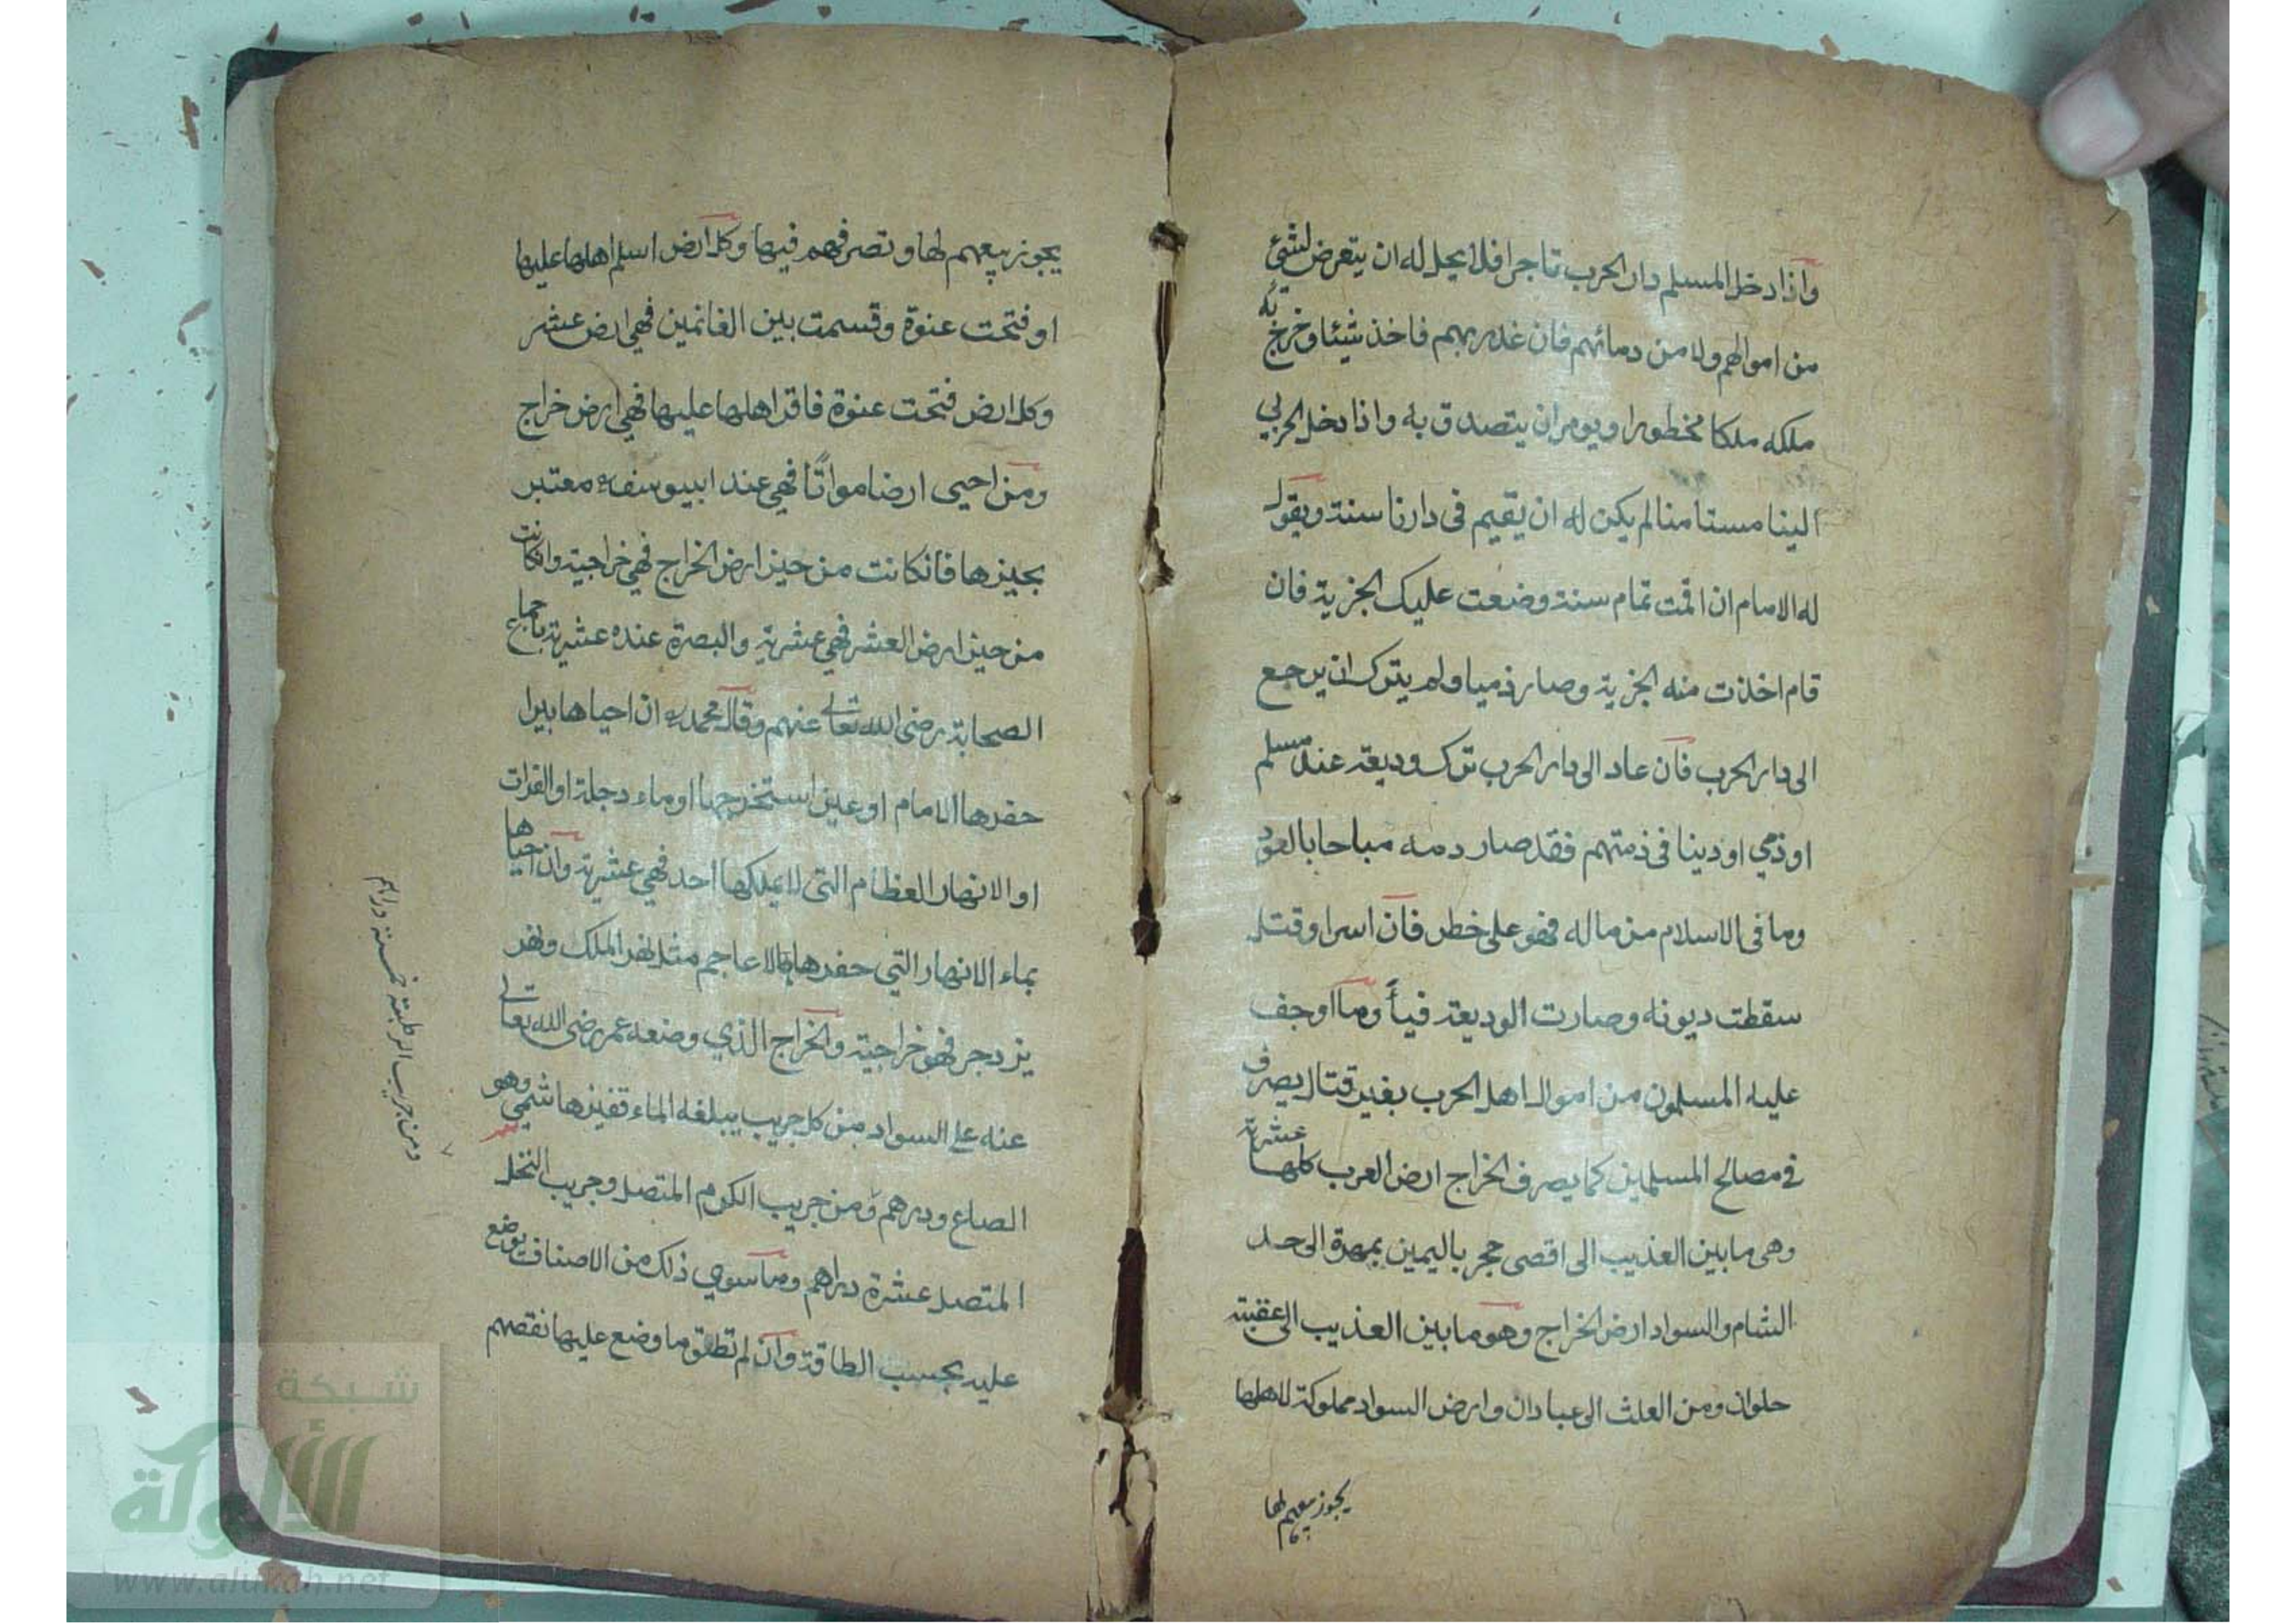 واذا دخل المسلم دار الحرب تاجرا فلا يحل له ان يتعرض لشيئ
من اموالهم ولا من دمائهم فان غدر بهم فاخذ شيئا وخرج به
ملكه ملكا محظورا ويومر ان يتصدق به واذا دخل الحربي
الينا مستامنا لم يكن له ان يقيم فى دارنا سنة ويقول
له الامام ان اقمت تمام سنة وضعت عليك الجزية فان
قام اخذت منه الجزية وصار ذميا ولم يترك ان يرجع
الى دار الحرب فان عاد الى دار الحرب ترك وديعة عند مسلم
او ذمي او دينا فى ذمتهم فقد صار دمه مباحا بالعود
وما فى الاسلام من ماله فهو على خطر فان اسر او قتل
سقطت ديونه وصارت الوديعة فيأ وما اوجف
عليه المسلمون من اموال اهل الحرب بغير قتال يصرف
في مصالح المسلمين كما يصرف الخراج ارض العرب كلها عشرية
وهى ما بين العذيب الى اقصى حجر باليمين بمهرة الى حد
الشام والسواد ارض الخراج وهو ما بين العذيب الى عقبة
حلوان ومن العلث الى عبادان وارض السواد مملوكة لاهلها
يجوز بيعهم لها
يجوز بيعهم لها وتصرفهم فيها وكل ارض اسلم اهلها عليها
او فتحت عنوة وقسمت بين الغانمين فهي ارض عشر
وكل ارض فتحت عنوة فاقر اهلها عليها فهي ارض خراج
ومن احيى ارضا مواتًا فهي عند ابيوسف معتبر
بحيزها فانكانت من حيز ارض الخراج فهي خراجية وانكانت
من حيز ارض العشر فهي عشرية والبصرة عنده عشرية باجماع
الصحابة رضى الله تعالى عنهم وقال محمد ره ان احياها ببرا
حفرها الامام او عين استخرجها او ماء دجلة او الفرات
او الانهار العظام التى لا يملكها احد فهي عشرية وان احياها
بماء الانهار التي حفرها الاعاجم مثل نهر الملك ونهر
يزدجر فهو خراجية والخراج الذي وضعه عمر رضى الله تعالى
عنه على السواد من كل جريب يبلغه الماء قفيز هاشمي وهو
الصاع ودرهم ومن جريب الكرم المتصل وجريب النخل
المتصل عشرة دراهم وما سوي ذلك من الاصناف يوضع
عليه بحسب الطاقة وان لم تطق ما وضع عليها نقصهم
ومن جريب الرطبة خمسة دراهم
شبكة
الألوكة
www.alukah.net